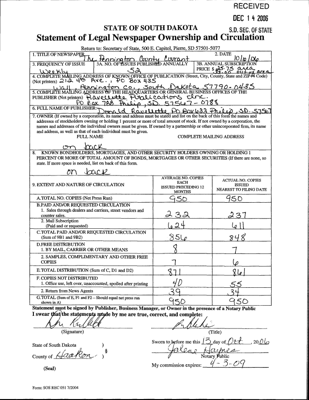 RECEIVED
DEC 14 2006
S.D. SEC. OF STATE
STATE OF SOUTH DAKOTA
Statement of Legal Newspaper Ownership and Circulation
Return to: Secretary of State, 500 E. Capitol, Pierre, SD 57501-5077
1. TITLE OF NEWSPAPER The Pennington County Courant
2. DATE 10/6/06
3. FREQUENCY OF ISSUE Weekly
3A. NO. OF ISSUES PUBLISHED ANNUALLY 52
3B. ANNUAL SUBSCRIPTION PRICE
4. COMPLETE MAILING ADDRESS OF KNOWN OFFICE OF PUBLICATION (Street, City, County, State and ZIP+4 Code)
(Not printers) 212 4th Ave., PO Box 435
Wall Pennington Co., South Dakota 57790-0435
5. COMPLETE MAILING ADDRESS OF THE HEADQUARTERS OF GENERAL BUSINESS OFFICES OF THE
PUBLISHER (Not printer) Ravellette Publications Inc.
PO Box 788 Philip, SD 57567-0788
6. FULL NAME OF PUBLISHER: Donald Ravellette, PO Box 788 Philip, SD 57567
7. OWNER (If owned by a corporation, its name and address must be stated and list on the back of this form the names and
addresses of stockholders owning or holding 1 percent or more of total amount of stock. If not owned by a corporation, the
names and addresses of the individual owners must be given. If owned by a partnership or other unincorporated firm, its name
and address, as well as that of each individual must be given.
FULL NAME
COMPLETE MAILING ADDRESS
on back
8. KNOWN BONDHOLDERS, MORTGAGEES, AND OTHER SECURITY HOLDERS OWNING OR HOLDING 1
PERCENT OR MORE OF TOTAL AMOUNT OF BONDS, MORTGAGES OR OTHER SECURITIES (If there are none, so
state. If more space is needed, list on back of this form.
on back
9. EXTENT AND NATURE OF CIRCULATION
AVERAGE NO. COPIES EACH ISSUED PRECEDING 12 MONTHS
ACTUAL NO. COPIES ISSUED NEAREST TO FILING DATE
A. TOTAL NO. COPIES (Net Press Run) 950 950
B. PAID AND/OR REQUESTED CIRCULATION
1. Sales through dealers and carriers, street vendors and
counter sales. 232 237
2. Mail Subscription
(Paid and or requested) 624 611
C. TOTAL PAID AND/OR REQUESTED CIRCULATION
(Sum of 9B1 and 9B2) 856 848
D. FREE DISTRIBUTION
1. BY MAIL, CARRIER OR OTHER MEANS 8 7
2. SAMPLES, COMPLIMENTARY AND OTHER FREE
COPIES 7 6
E. TOTAL DISTRIBUTION (Sum of C, D1 and D2) 871 861
F. COPIES NOT DISTRIBUTED
1. Office use, left over, unaccounted, spoiled after printing 40 55
2. Return from News Agents 39 34
G. TOTAL (Sum of E, F1 and F2 - Should equal net press run
shown in A) 950 950
Statement must be signed by Publisher, Business Manager, or Owner in the presence of a Notary Public
I swear that the statements made by me are true, correct, and complete:
(Signature)
(Title)
State of South Dakota )
Sworn to before me this 13 day of Oct. 2006
County of Haakon )
Notary Public
(Seal)
My commission expires: 4-3-09